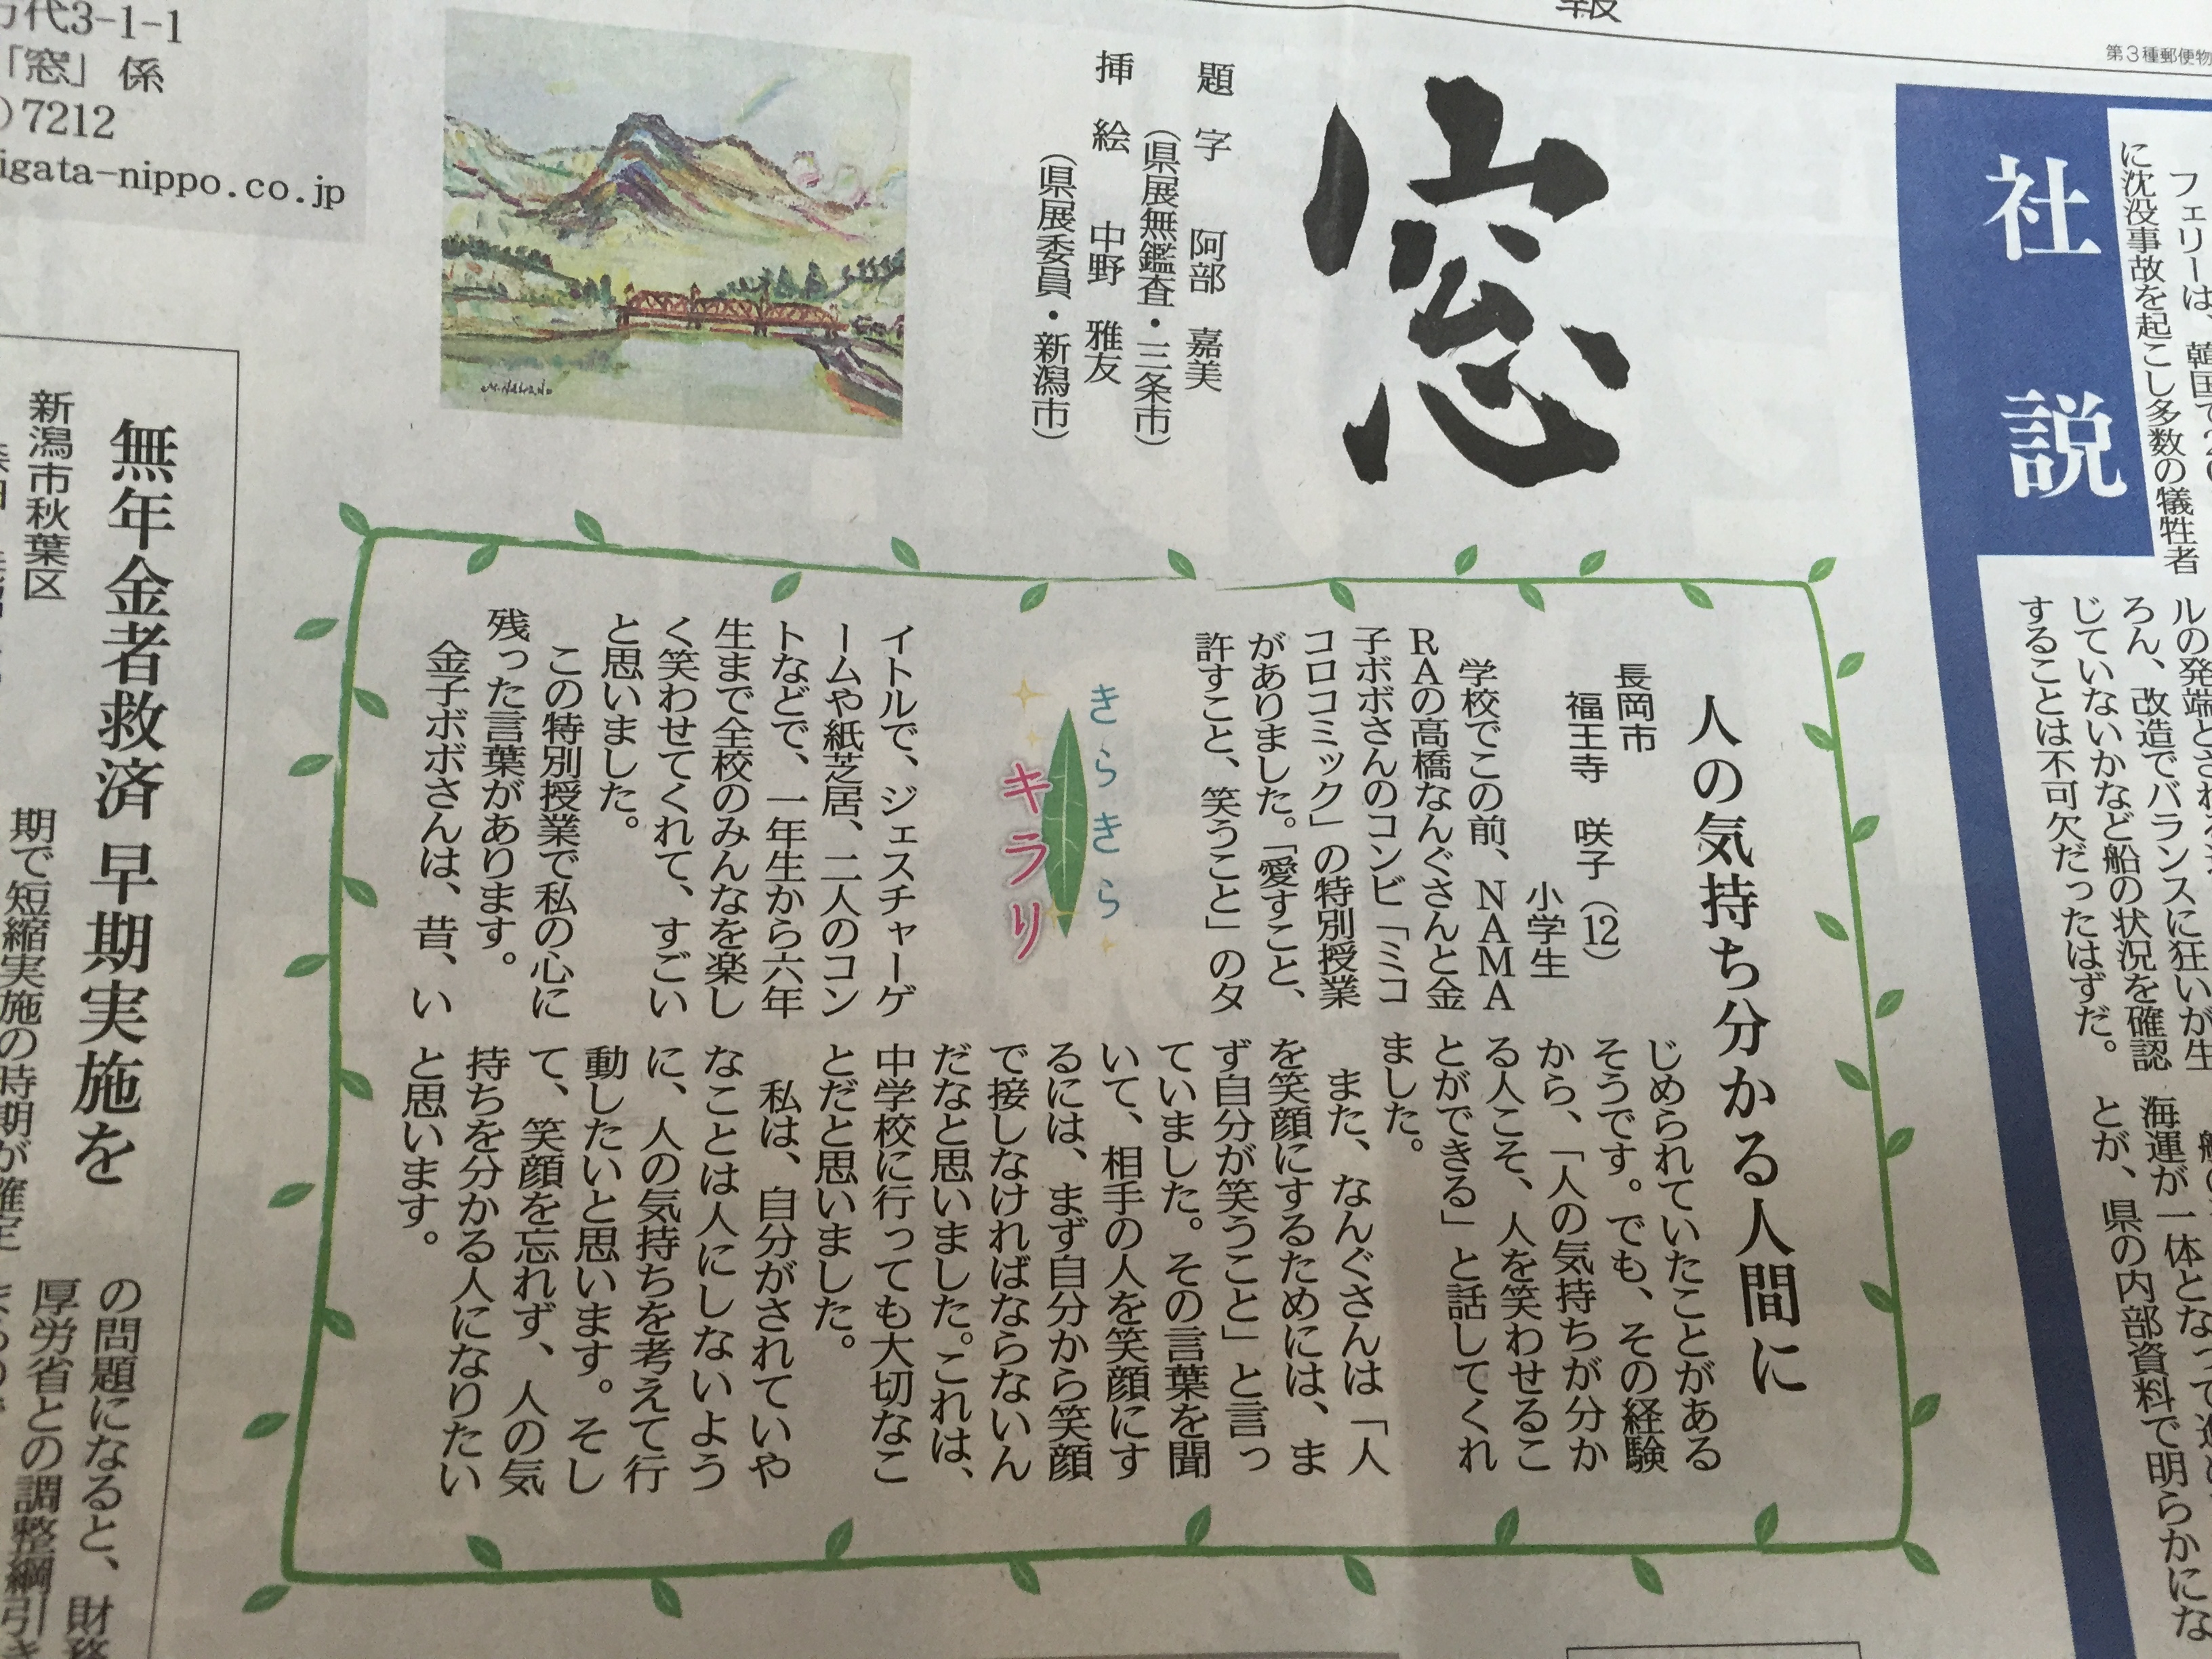 報
第3種郵便物
社説
フェリーは、韓国で
に沈没事故を起こし多数の犠牲者
ルの発端とされる
ろん、改造でバランスに狂いが生
じていないかなど船の状況を確認
することは不可欠だったはずだ。
海運が一体となって進
とが、県の内部資料で明らかにな
窓
題字 阿部 嘉美
(県展無鑑査・三条市)
挿絵 中野 雅友
(県展委員・新潟市)
M.NAKANO
人の気持ち分かる人間に
長岡市
福王寺 咲子(12)
小学生
学校でこの前、NAMA
RAの高橋なんぐさんと金
子ボボさんのコンビ「ミコ
コロコミック」の特別授業
がありました。「愛すこと、
許すこと、笑うこと」のタ
きらきら
キラリ
イトルで、ジェスチャーゲ
ームや紙芝居、二人のコン
トなどで、一年生から六年
生まで全校のみんなを楽し
く笑わせてくれて、すごい
と思いました。
この特別授業で私の心に
残った言葉があります。
金子ボボさんは、昔、い
じめられていたことがある
そうです。でも、その経験
から、「人の気持ちが分か
る人こそ、人を笑わせるこ
とができる」と話してくれ
ました。
また、なんぐさんは「人
を笑顔にするためには、ま
ず自分が笑うこと」と言っ
ていました。その言葉を聞
いて、相手の人を笑顔にす
るには、まず自分から笑顔
で接しなければならないん
だなと思いました。これは、
中学校に行っても大切なこ
とだと思いました。
私は、自分がされていや
なことは人にしないよう
に、人の気持ちを考えて行
動したいと思います。そし
て、笑顔を忘れず、人の気
持ちを分かる人になりたい
と思います。
代3-1-1
「窓」係
)7212
igata-nippo.co.jp
無年金者救済 早期実施を
新潟市秋葉区
期で短縮実施の時期が確定
の問題になると、財務
厚労省との調整綱引き